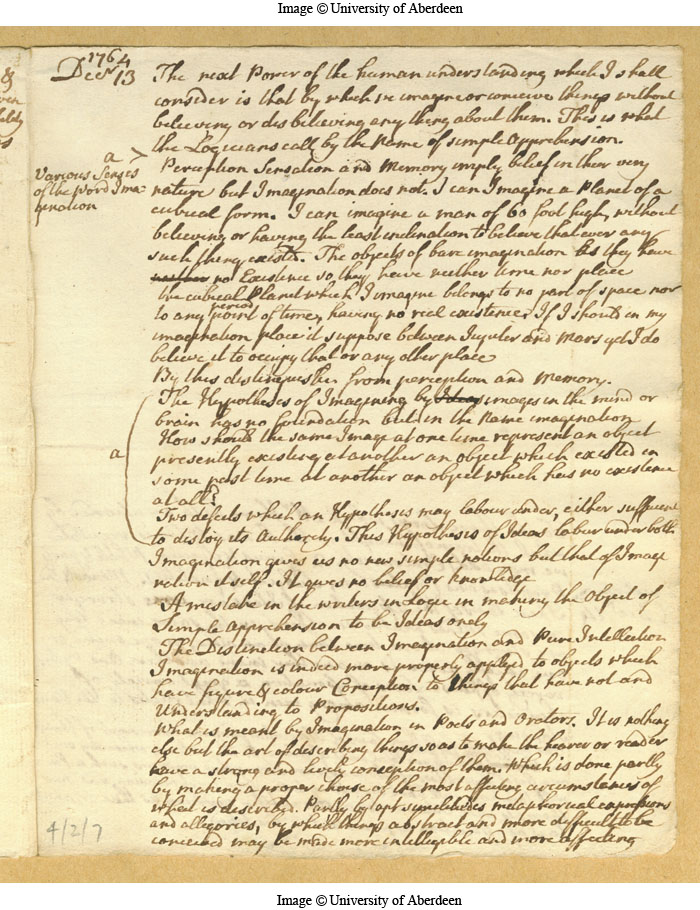 Image © University of Aberdeen
1764
Decr 13
The next Power of the human understanding which I shall
consider is that by which we imagine or conceive things without
believing or disbelieving any thing about them. This is what
the Logicians call by the Name of simple Apprehension.
a >
Various Senses
of the word Ima-
gination
Perception Sensation and Memory imply belief in their very
nature but Imagination does not. I can Imagine a Planet of a
cubical form. I can imagine a man of 60 foot high, without
believing or having the least inclination to believe that ever any
such thing existed. The objects of bare imagination As they have
neither no Existence so they have neither time nor place
the cubical Planet which I imagine belongs to no part of space nor
to any period point of time, having no real existence, If I should in my
imagination place it suppose between Jupiter and Mars yet I do
believe it to occupy that or any other place
By this distinguishes from perception and Memory.
The Hypotheses of Imagining by Ideas images in the mind or
brain has no foundation but in the Name imagination
a
How should the same Image at one time represent an object
presently existing at another an object which existed in
some past time at another an object which has no existence
at all?
Two defects which an Hypothesis may labour under, either sufficient
to destroy its Authority. This Hypothesis of Ideas labour under both
Imagination gives us no new simple notions but that of Imagi
nation itself. It gives no belief or knowledge
A mistake in the writers in Logic in making the Object of
Simple Apprehension to be Ideas onely
The Distinction between Imagination and Pure Intellection
Imagination is indeed more properly applyed to objects which
have figure & colour Conception to things that have not and
Understanding to Propositions.
What is meant by Imagination in Poets and Orators. It is nothing
else but the art of describing things so as to make the hearer or reader
have a strong and lively conception of them. Which is done partly
by making a proper choise of the most affecting circumstances of
what is described. Partly by apt similitudes metaphorical expressions
and allegories, by which things abstract and more difficult to be
conceived may be made more intelligible and more affecting
4/2/7
Image © University of Aberdeen